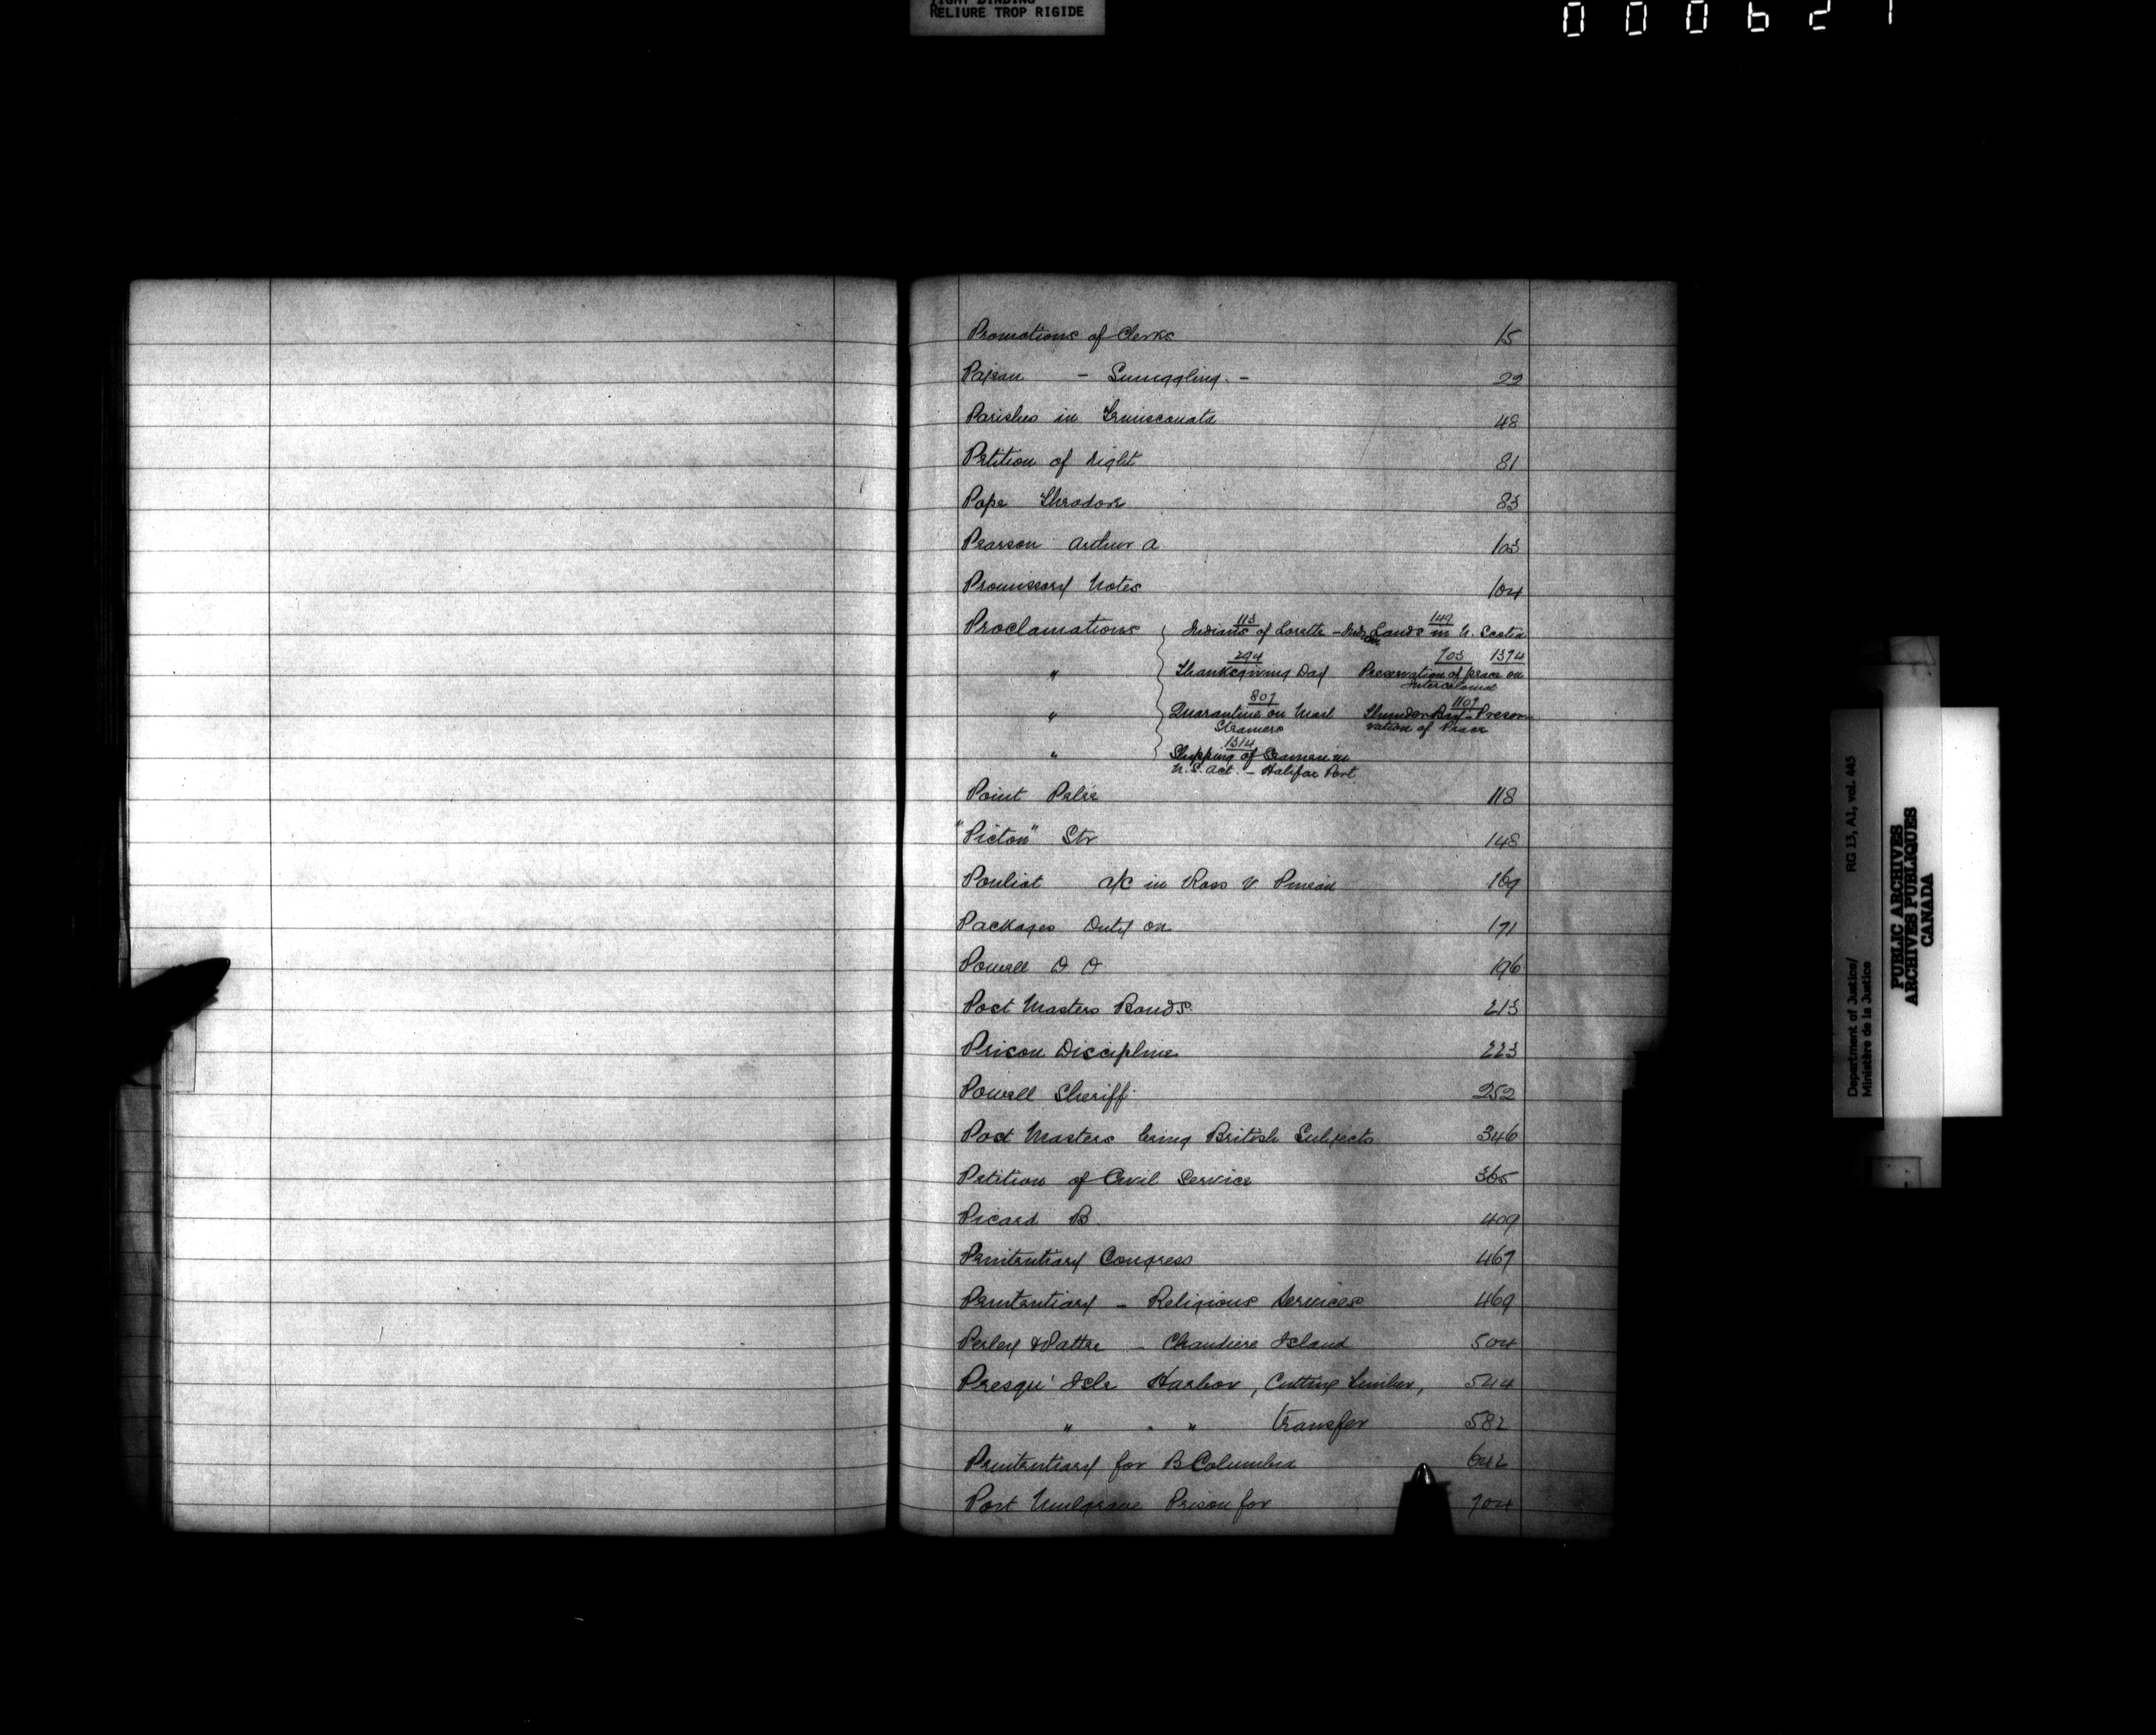 TIGHT BINDING
RELIURE TROP RIGIDE
000627
Promotions of Clerks 15
- Smuggling - 22
Parishes in Temiscouata 48
Petition of right 81
Pope Theodore 83
Pearson Arthur A 103
Promissory Notes 104
113 149
Proclamations Indians of Lorette - Indian Lands in N. Scotia
294 703 1374
" Thanksgiving Day Preservation of peace on
Intercolonial
807 1107
" Quarantine on Mail Thunder Bay - Preser-
Steamers vation of Peace
1314
" Shipping of Seamen in
N.S. Act. - Halifax Port
Point Pelee 118
"Picton" Str 148
Pouliot a/c in Ross v 169
Packages Duty on 171
Powell 196
Post Masters Bonds. 213
Prison Discipline 223
Powell Sheriff. 252
Post Masters being British Subjects 346
Petition of Civil Service 365
Picard B. 409
Penitentiary Congress 467
Penitentiary - Religious Services 469
Perley & Pattee - Chaudiere Island 504
Presqu' Isle Harbor, Cutting Timber, 544
" " " Transfer 582
Penitentiary for B Columbia 642
Port Mulgrave Prison for 704
Department of Justice/ RG 13, A1, vol. 445
Ministère de la Justice
PUBLIC ARCHIVES
ARCHIVES PUBLIQUES
CANADA